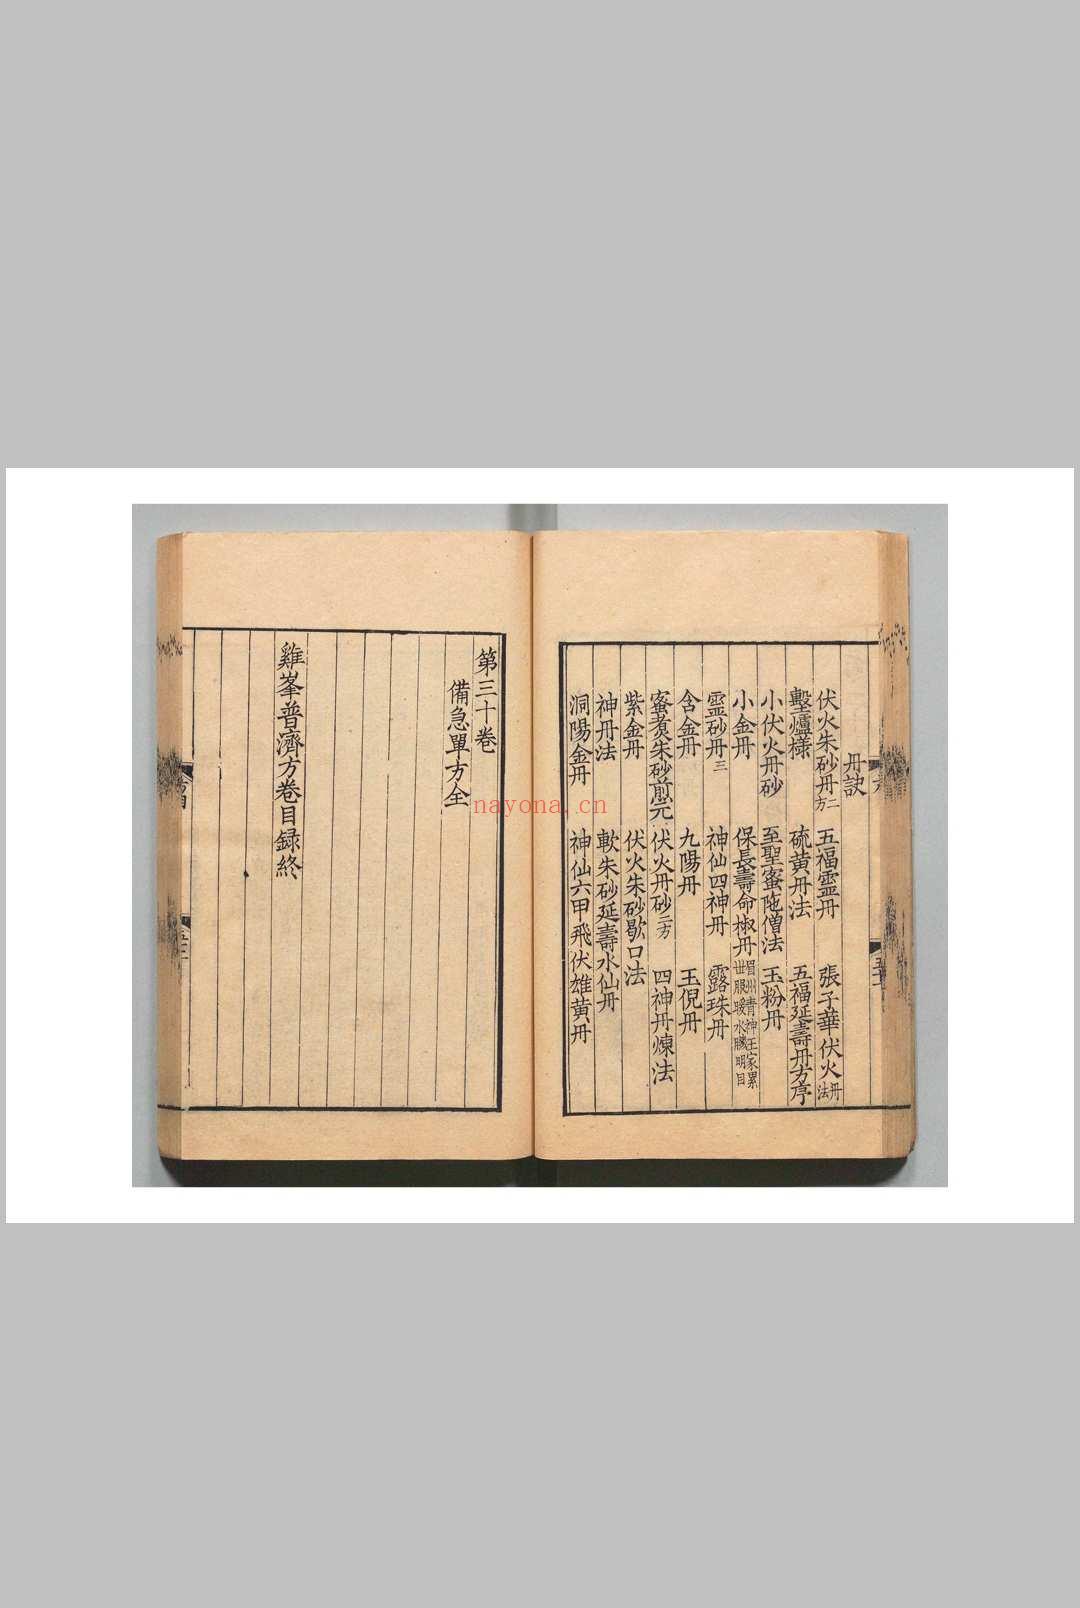 丹訣
伏火朱砂丹二方　五福靈丹　張子華伏火丹法
墼爐㨾　硫黃丹法　五福延壽丹方序
小伏火丹砂　至聖蜜陁僧法　玉粉丹
小金丹　保長壽命椒丹眉州青神王家累世服暖水臟明目
靈砂丹三　神仙四神丹　露珠丹
含金丹　九陽丹　王倪丹
蜜煑朱砂煎元　伏火丹砂二方　四神丹煉法
紫金丹　伏火朱砂歇口法
神丹法　軟朱砂延壽水仙丹
洞陽金丹　神仙六甲飛伏雄黃丹
第三十卷
備急單方全
雞峯普濟方卷目録終
nayona.cn